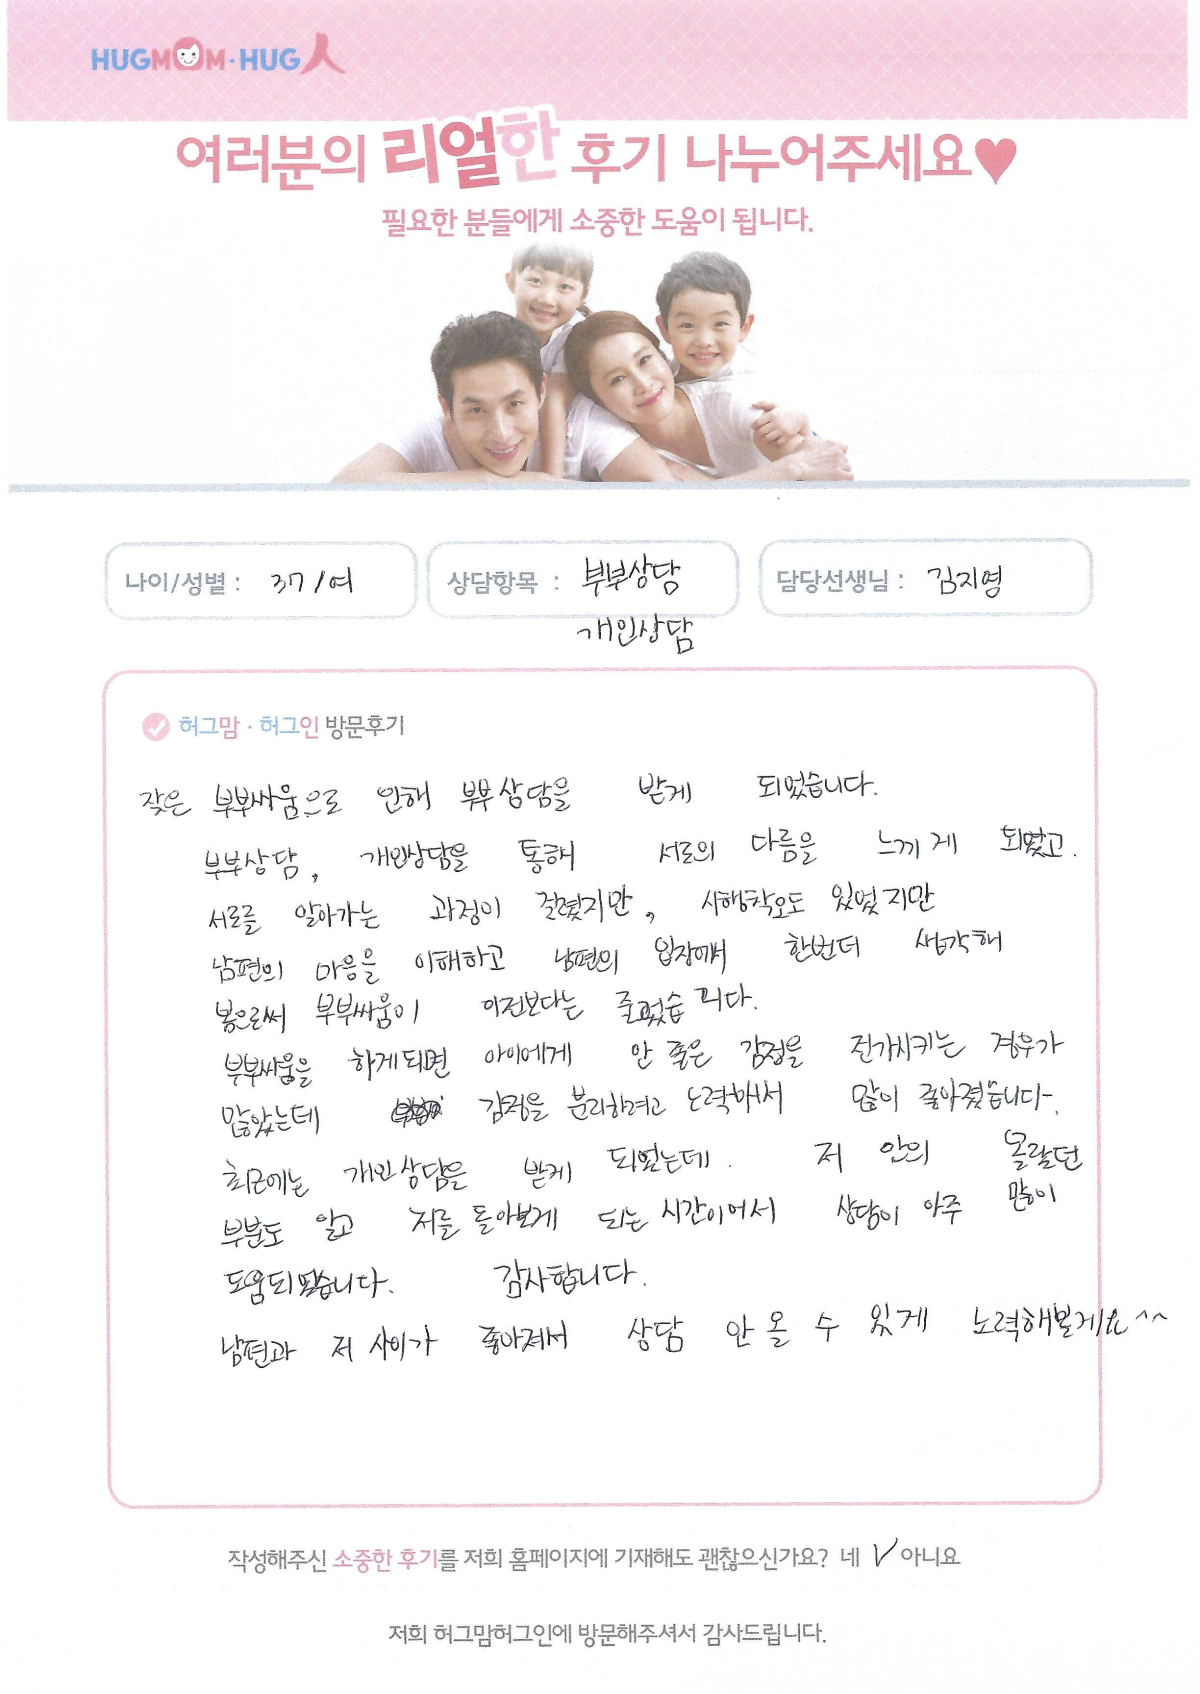 HUGMOM·HUG人
여러분의 리얼한 후기 나누어주세요♥
필요한 분들에게 소중한 도움이 됩니다.
나이/성별 : 37/여 상담항목 : 부부상담 담당선생님 : 김지영
개인상담
허그맘 · 허그인 방문후기
잦은 부부싸움으로 인해 부부상담을 받게 되었습니다.
부부상담, 개인상담을 통해 서로의 다름을 느끼게 되었고.
서로를 알아가는 과정이 길었지만, 시행착오도 있었지만
남편의 마음을 이해하고 남편의 입장에서 한번더 생각해
봄으로써 부부싸움이 이전보다는 줄었습니다.
부부싸움을 하게되면 아이에게 안 좋은 감정을 전가시키는 경우가
많았는데 감정을 분리하려고 노력해서 많이 좋아졌습니다.
최근에는 개인상담을 받게 되었는데. 저 안의 몰랐던
부분도 알고 저를 돌아보게 되는 시간이어서 상담이 아주 많이
도움되었습니다. 감사합니다.
남편과 저 사이가 좋아져서 상담 안 올 수 있게 노력해볼게요^^
작성해주신 소중한 후기를 저희 홈페이지에 기재해도 괜찮으신가요? 네 √ 아니요
저희 허그맘허그인에 방문해주셔서 감사드립니다.